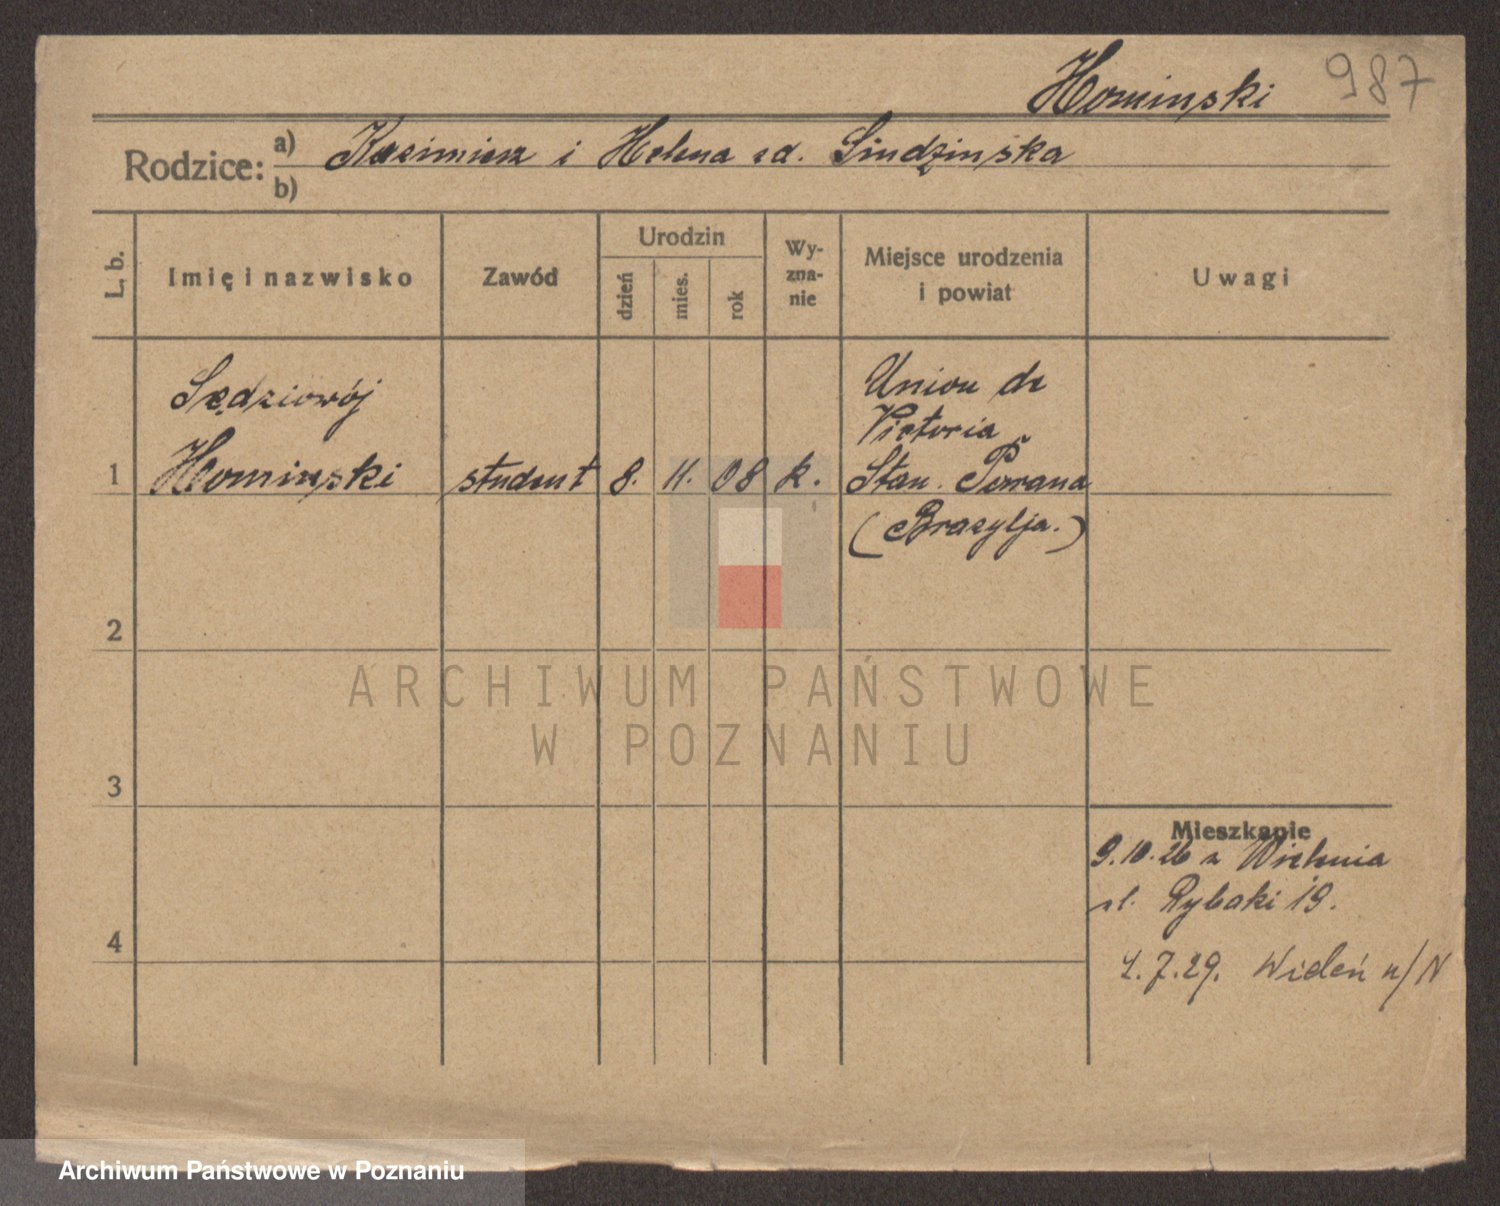 Hominski 987
Rodzice: a) Kazimierz i Helena zd. Sindzińska
b)
L. b. Imię i nazwisko Zawód Urodzin dzień mies. rok Wyznanie Miejsce urodzenia i powiat Uwagi
Sędziowój
Union de
Victoria
1 Hominski student 8. 11. 08 k. Stan. Parrana
(Brazylja.)
2
3
4
Mieszkanie
9.10.26 z Wielunia
ul. Rybaki 19.
1.7.29. Wieleń n/N
ARCHIWUM PAŃSTWOWE
W POZNANIU
Archiwum Państwowe w Poznaniu